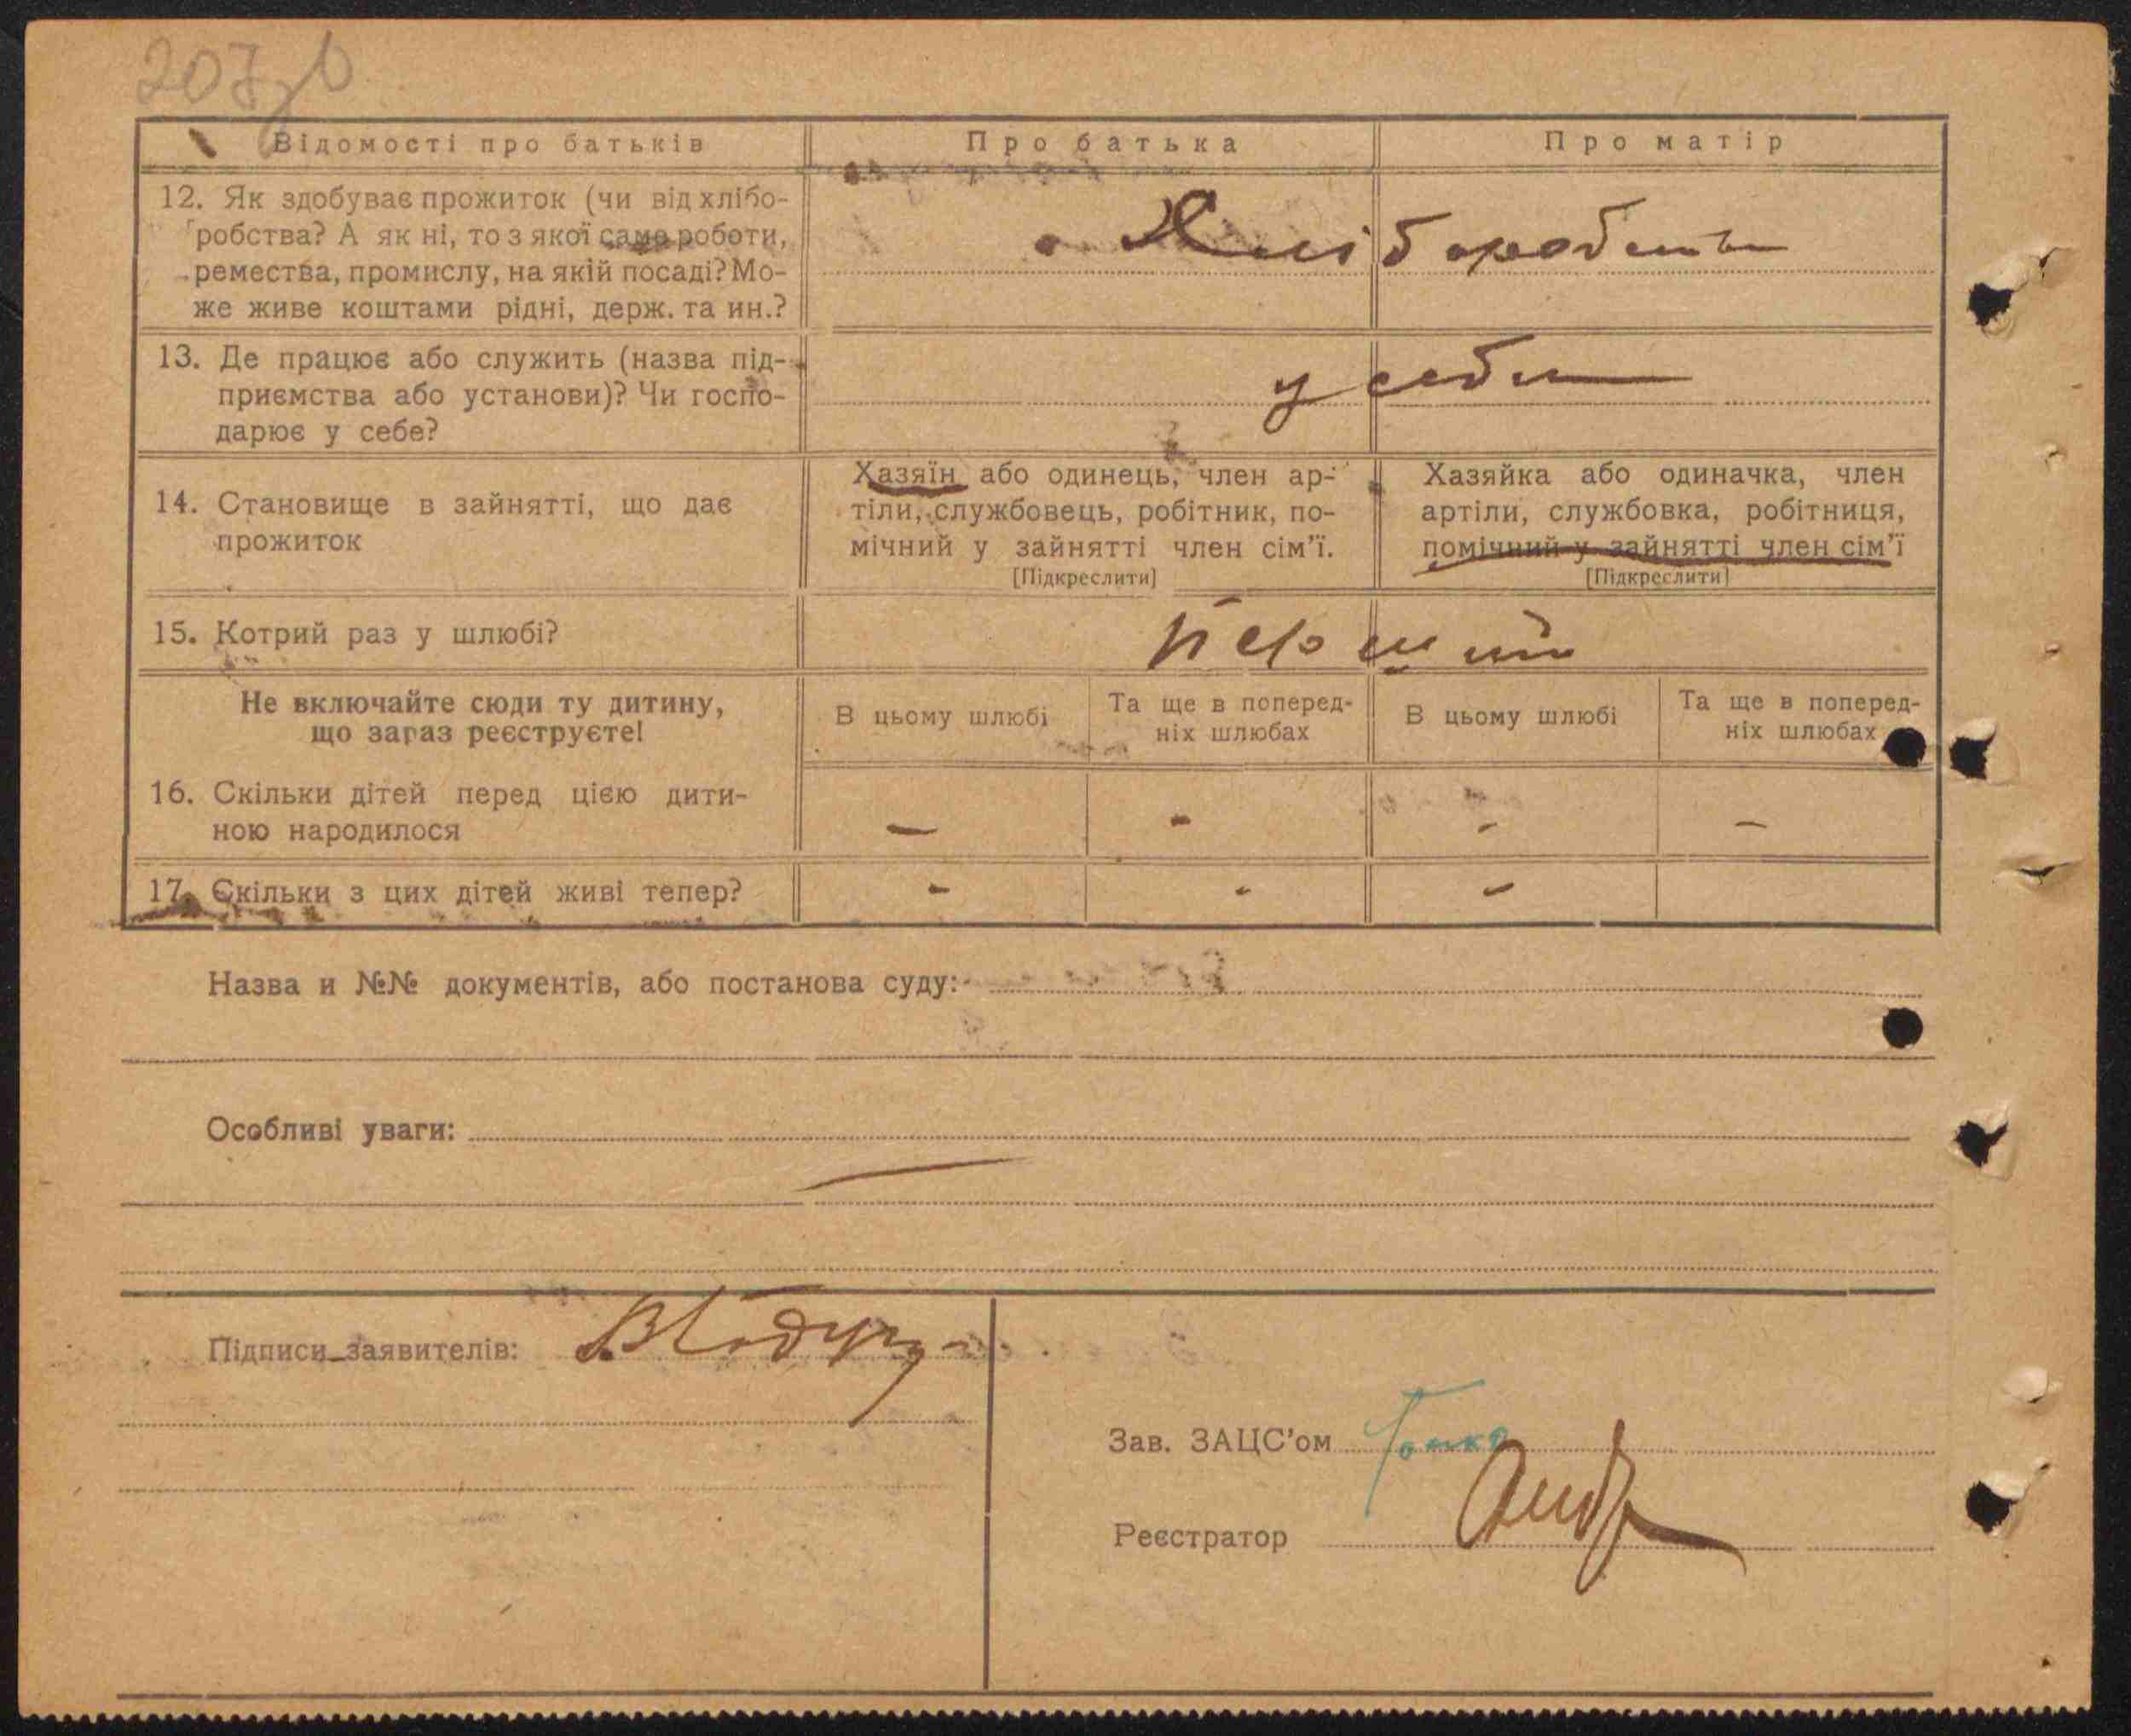 207зв
Відомості про батьків
Про батька
Про матір
12. Як здобуває прожиток (чи від хлібо-
робства? А як ні, то з якої саме роботи,
ремества, промислу, на якій посаді? Мо-
же живе коштами рідні, держ. та ин.?
Хліборобств
13. Де працює або служить (назва під-
приємства або установи)? Чи госпо-
дарює у себе?
у себе
14. Становище в зайнятті, що дає
прожиток
Хазяїн або одинець, член ар-
тіли, службовець, робітник, по-
мічний у зайнятті член сім'ї.
[Підкреслити]
Хазяйка або одиначка, член
артіли, службовка, робітниця,
помічний у зайнятті член сім'ї
[Підкреслити]
15. Котрий раз у шлюбі?
перший
Не включайте сюди ту дитину,
що зараз реєструєте!
В цьому шлюбі
Та ще в поперед-
ніх шлюбах
В цьому шлюбі
Та ще в поперед-
ніх шлюбах
16. Скільки дітей перед цією дити-
ною народилося
– – – –
17. Скільки з цих дітей живі тепер?
– – –
Назва и №№ документів, або постанова суду:
Особливі уваги:
—
Підписи заявителів:
Зав. ЗАЦС'ом
Реєстратор